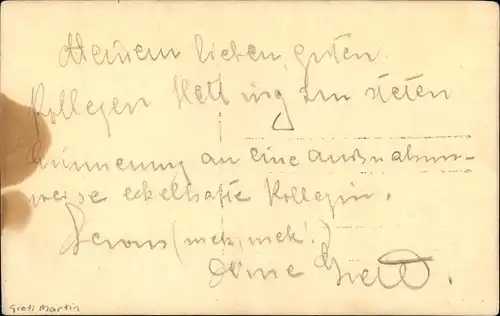 Meinem lieben, guten
Kollegen Hellwig zur steten
Erinnerung an eine ausnahms-
weise ekelhafte Kollegin.
Servus (mek, mek!)
Deine Gretl.
Gretl Martin